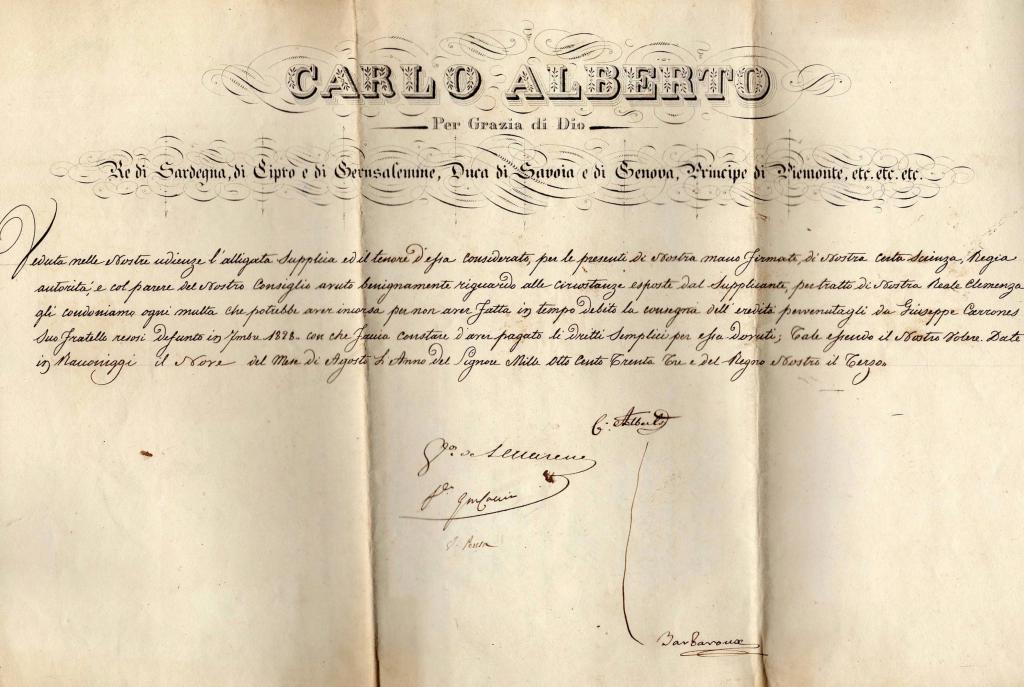 CARLO ALBERTO
Per Grazia di Dio
Re di Sardegna, di Cipro e di Gerusalemme, Duca di Savoia e di Genova, Principe di Piemonte, etc. etc. etc.
Veduta nelle Nostre udienze l'alligata Supplica ed il tenore d'essa considerato, per le presenti di Nostra mano Firmate, di Nostra certa Scienza, Regia
autorità, e col parere del Nostro Consiglio avuto benignamente riguardo alle circostanze esposte dal Supplicante, per tratto di Nostra Reale Clemenza
gli condoniamo ogni multa che potrebbe aver incorsa per non aver Fatta in tempo debito la consegna dell'eredità pervenutagli da Giuseppe Carrones
Suo Fratello resosi defunto in 7mbre 1828. con che Faccia constare d'aver pagato li dritti Semplici per essa Dovuti; Tale essendo il Nostro Volere. Date
in Racconiggi il Nove del Mese di Agosto L'Anno del Signore Mille Otto Cento Trenta Tre e del Regno Nostro il Terzo.
C. Alberto
Barbaroux